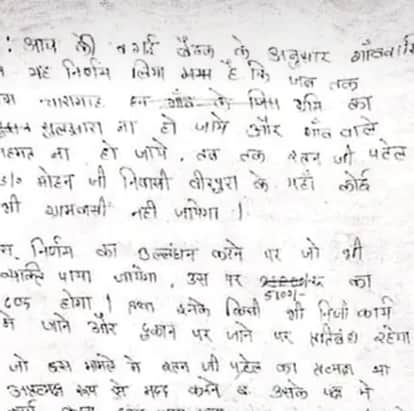 : आप की बगई बैठक के अनुसार गाँववासि
यह निर्णय लिया गया है कि जब तक
चारागाह जिस भूमि का
सुलझारा ना हो जाये और गाँव वाले
सहमत ना हो जाये, तब तक रतन जी पटेल
S/o मोहन जी निवासी वीरपुरा के यहाँ कोई
भी ग्रामवासी नही जायेगा।
स निर्णय का उल्लंघन करने पर जो भी
व्यक्ति पाया जायेगा, उस पर 5101/- का
दण्ड होगा। तथा इनके किसी भी निजी कार्य
मे जाने और दुकान पर जाने पर प्रतिबंध रहेगा
जो इस मामले मे रतन जी पटेल का प्रत्यक्ष या
अप्रत्यक्ष रूप से मदद करने व उसके पक्ष मे